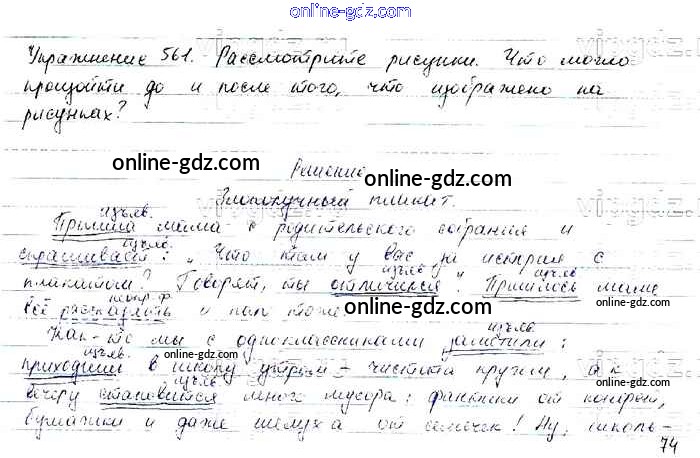 online-gdz.com
Упражнение 561. Рассмотрите рисунки. Что могло
произойти до и после того, что изображено на
рисунках?
online-gdz.com
online-gdz.com
Решение
Злополучный плакат.
изъяв.
Пришла мама с родительского собрания и
изъяв.
спрашивает: „Что там у вас за история с
изъяв. изъяв.
плакатом? Говорят, ты отличился". Пришлось маме
неопр. ф.
всё рассказать и папе тоже
online-gdz.com
online-gdz.com
изъяв.
Как-то мы с одноклассниками заметили:
изъяв.
приходишь в школу утром - чистота кругом, а к
online-gdz.com
изъяв.
вечеру становится много мусора: фантики от конфет,
online-gdz.com
бумажки и даже шелуха от семечек! Ну, школь-
74